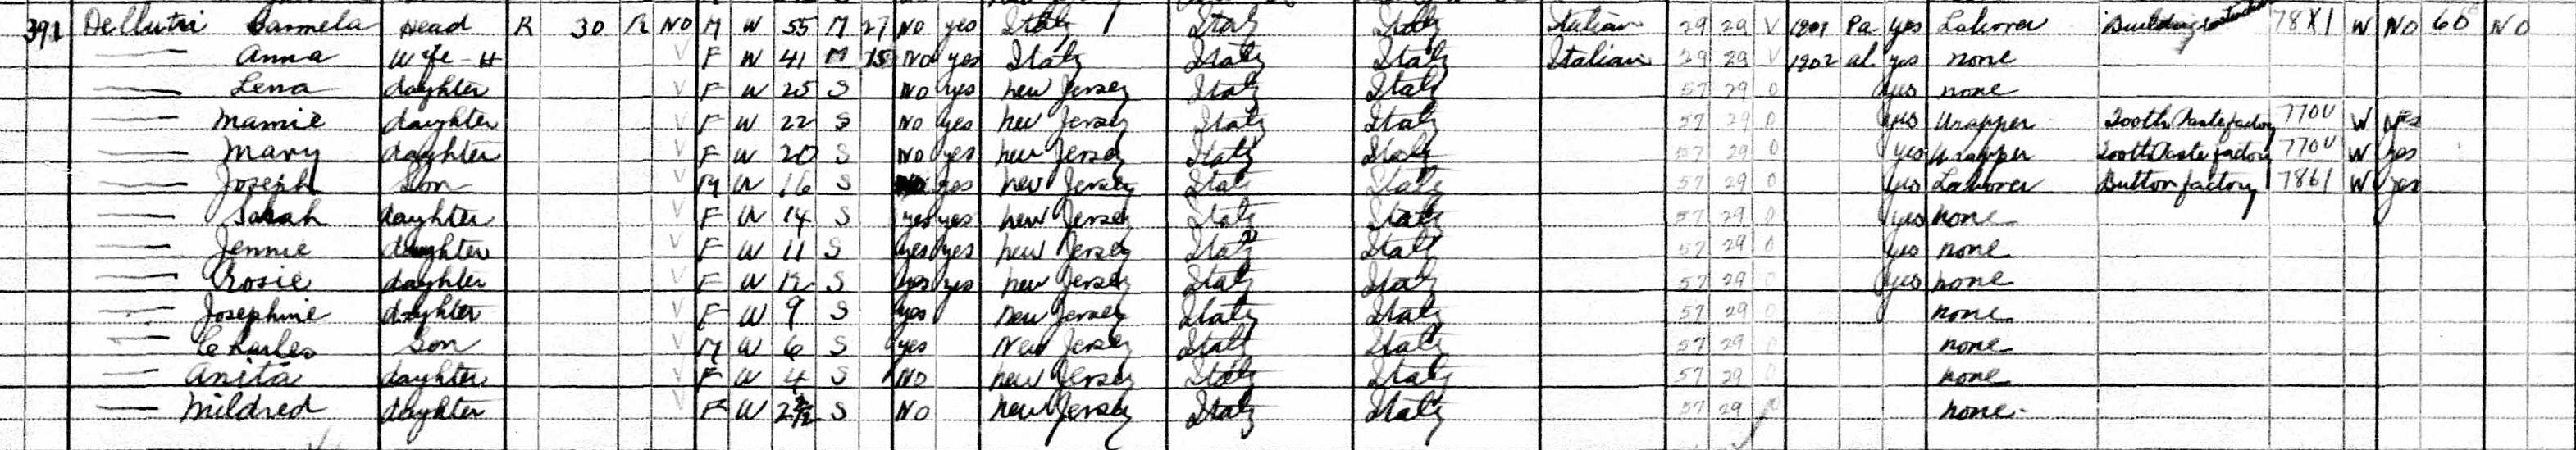 391 Dellutri Carmela Head R 30 R NO M W 55 M 27 NO yes Italy Italy Italy Italian 29 29 V 1901 Pa yes Laborer Building 78X1 W NO 60 NO
Anna Wife-H V F W 41 M 15 No yes Italy Italy Italy Italian 29 29 V 1902 al yes none
Lena daughter V F W 25 S NO yes new Jersey Italy Italy 57 29 0 yes none
Mamie daughter V F W 22 S No yes new Jersey Italy Italy 57 29 0 yes Wrapper Tooth Paste factory 770U W yes
Mary daughter V F W 20 S No yes new Jersey Italy Italy 57 29 0 yes Wrapper Tooth Paste factory 770U W yes
Joseph Son V M W 16 S yes new Jersey Italy Italy 57 29 0 yes Laborer Button factory 7861 W yes
Sarah daughter V F W 14 S yes yes new Jersey Italy Italy 57 29 0 yes none
Jennie daughter V F W 11 S yes yes new Jersey Italy Italy 57 29 0 yes none
Rosie daughter V F W 12 S yes yes new Jersey Italy Italy 57 29 0 yes none
Josephine daughter V F W 9 S yes new Jersey Italy Italy 57 29 0 none
Charles Son V M W 6 S yes New Jersey Italy Italy 57 29 0 none
Anita daughter V F W 4 S NO new Jersey Italy Italy 57 29 0 none
Mildred daughter V F W S NO new Jersey Italy Italy 57 29 none